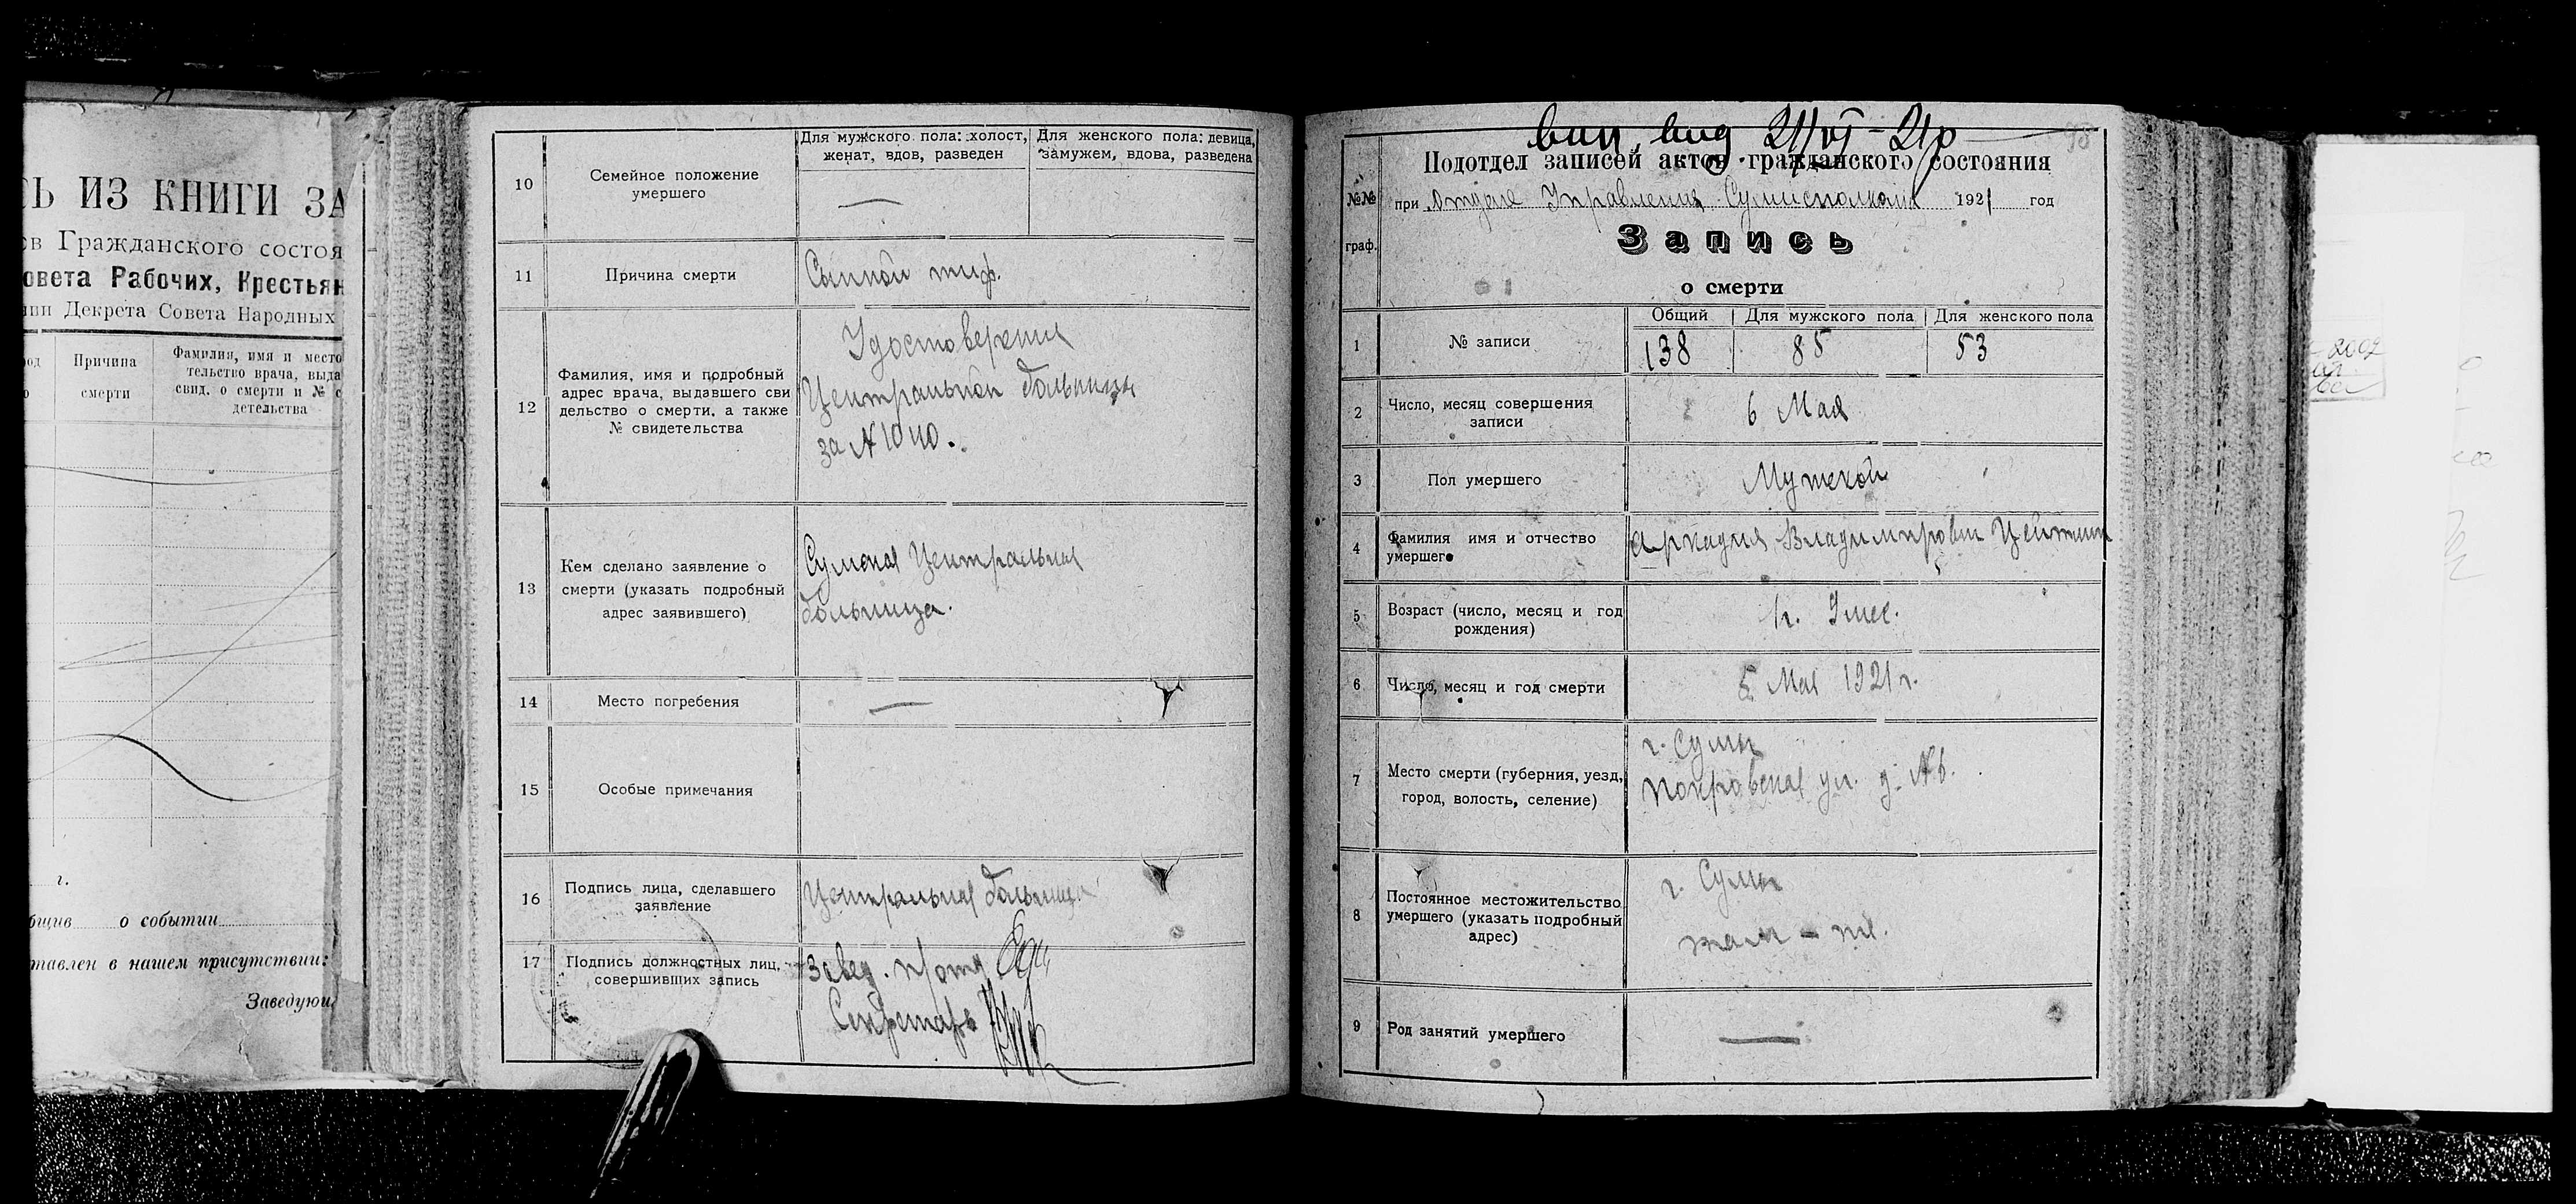 Ь ИЗ КНИГИ ЗА
ов Гражданского состоя
овета Рабочих, Крестьян
нии Декрета Совета Народных
Причина
смерти
Фамилия, имя и место
тельство врача, выда
свид. о смерти и № с
детельства
г.
бщив о событии
тавлен в нашем присутствии:
Заведующ
10
Семейное положение
умершего
Для мужского пола: холост,
женат, вдов, разведен
Для женского пола: девица,
замужем, вдова, разведена
—
11
Причина смерти
Сыпной тиф.
12
Фамилия, имя и подробный
адрес врача, выдавшего сви
дельство о смерти, а также
№ свидетельства
Удостоверения
Центральной больницы
за №1040.
13
Кем сделано заявление о
смерти (указать подробный
адрес заявившего)
Сумская Центральная
больница.
14
Место погребения
—
15
Особые примечания
16
Подпись лица, сделавшего
заявление
Центральная больница
17
Подпись должностных лиц,
совершивших запись
Завед. п/отд
Секретарь
Подотдел записей актов гражданского состояния
№№
граф.
при Отделе Управления Сумисполкома 1921 год
Запись
о смерти
1
№ записи
Общий
Для мужского пола
Для женского пола
138
85
53
2
Число, месяц совершения
записи
6 Мая
3
Пол умершего
Мужской
4
Фамилия имя и отчество
умершего
Аркадия Владимирович Цейтлин
5
Возраст (число, месяц и год
рождения)
1г. 9 мес.
6
Число, месяц и год смерти
5 Мая 1921 г.
7
Место смерти (губерния, уезд,
город, волость, селение)
г. Сумы
Покровская ул. д. №6.
8
Постоянное местожительство
умершего (указать подробный
адрес)
г. Сумы
там - же.
9
Род занятий умершего
—